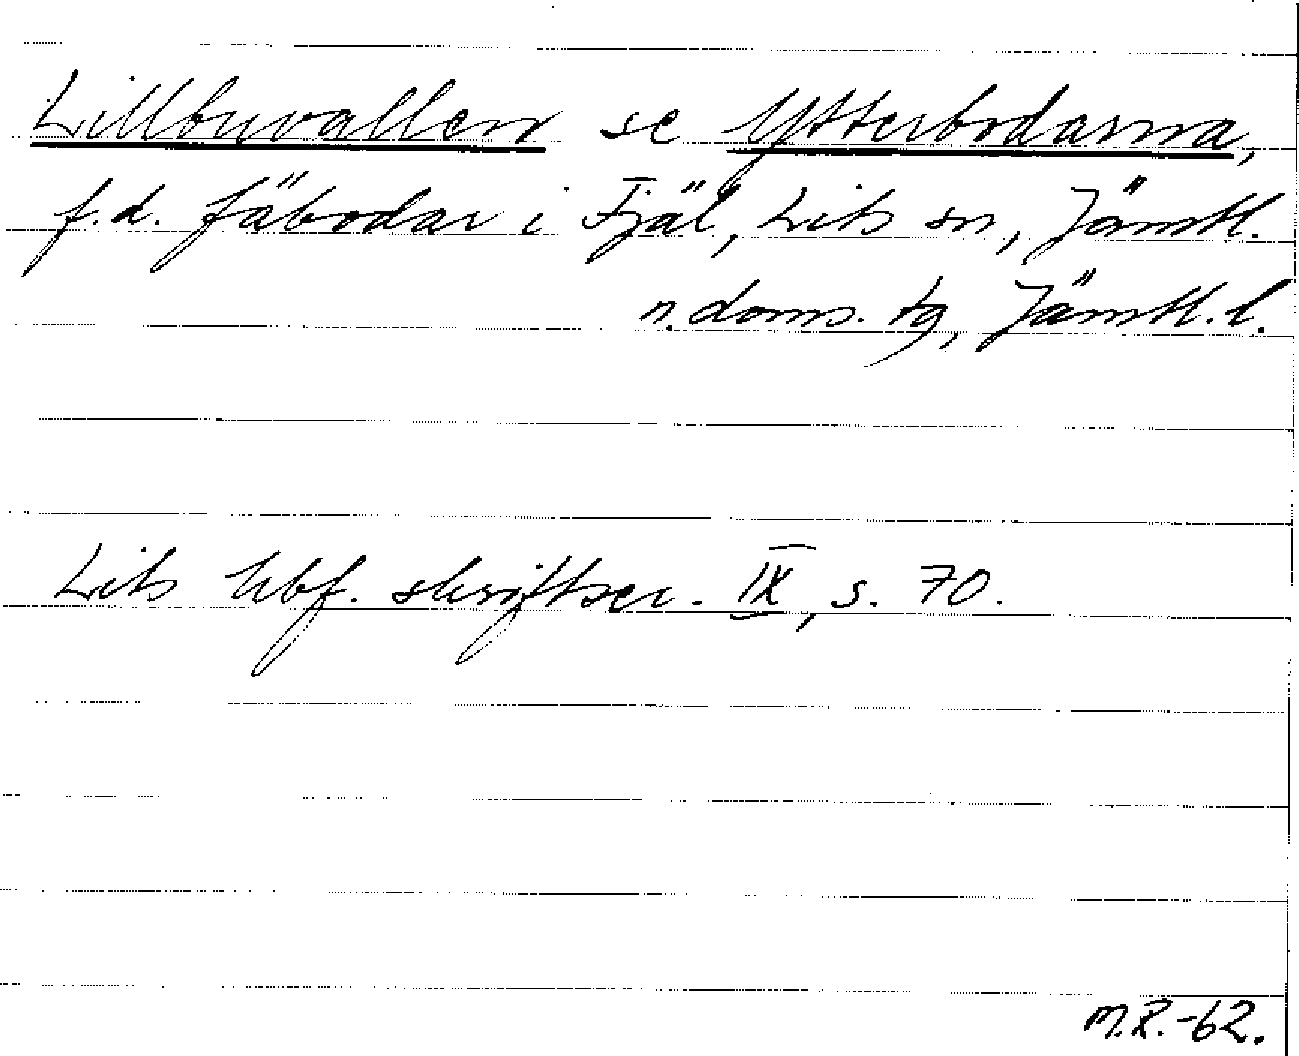 Lillbuvallen se Ytterbodarna,
f.d. fäbodar i Fjäl, Lits sn, Jämtl.
n. doms. tg, Jämtl. l.
Lits hbf. skriftser. IX, s. 70.
M.R.-62.